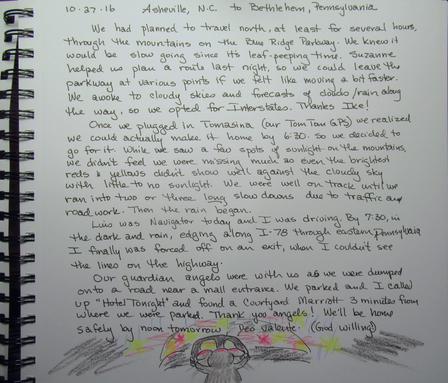 10.27.16 Asheville, N.C. to Bethlehem, Pennsylvania
We had planned to travel north, at least for several hours,
through the mountains on the Blue Ridge Parkway. We knew it
would be slow going since its leaf-peeping time. Suzanne
helped us plan a route last night, so we could leave the
parkway at various points if we felt like moving a bit faster.
We awoke to cloudy skies and forecasts of clouds/rain along
the way, so we opted for Interstates. Thanks Ike!
Once we plugged in Tomasina (our TomTom GPS) we realized
we could actually make it home by 6:30. So we decided to
go for it. While we saw a few spots of sunlight on the mountains,
we didn't feel we were missing much as even the brightest
reds & yellows didn't show well against the cloudy sky
with little to no sunlight. We were well on track until we
ran into two or three long slow downs due to traffic and
road work. Then the rain began.
Luis was Navigator today and I was driving. By 7:30, in
the dark and rain, edging along I-78 through eastern Pennsylvania
I finally was forced off on an exit, when I couldn't see
the lines on the highway.
Our guardian angels were with us as we were dumped
onto a road near a mall entrance. We parked and I called
up "Hotel Tonight" and found a Courtyard Marriott 3 minutes from
where we were parked. Thank you angels! We'll be home
safely by noon tomorrow Deo valente. (God willing)